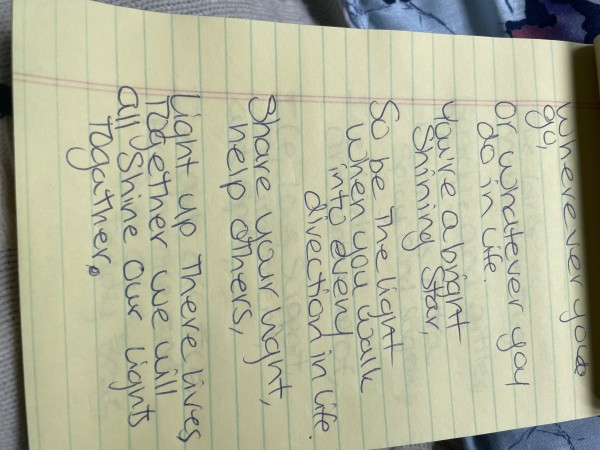 Wherever you
go,
Or whatever you
do in life.
You're a bright
Shining Star,
So be the light
when you walk
into every
direction in life.
Share your light,
help others,
Light up there lives,
Together we will
all Shine our lights
Together.